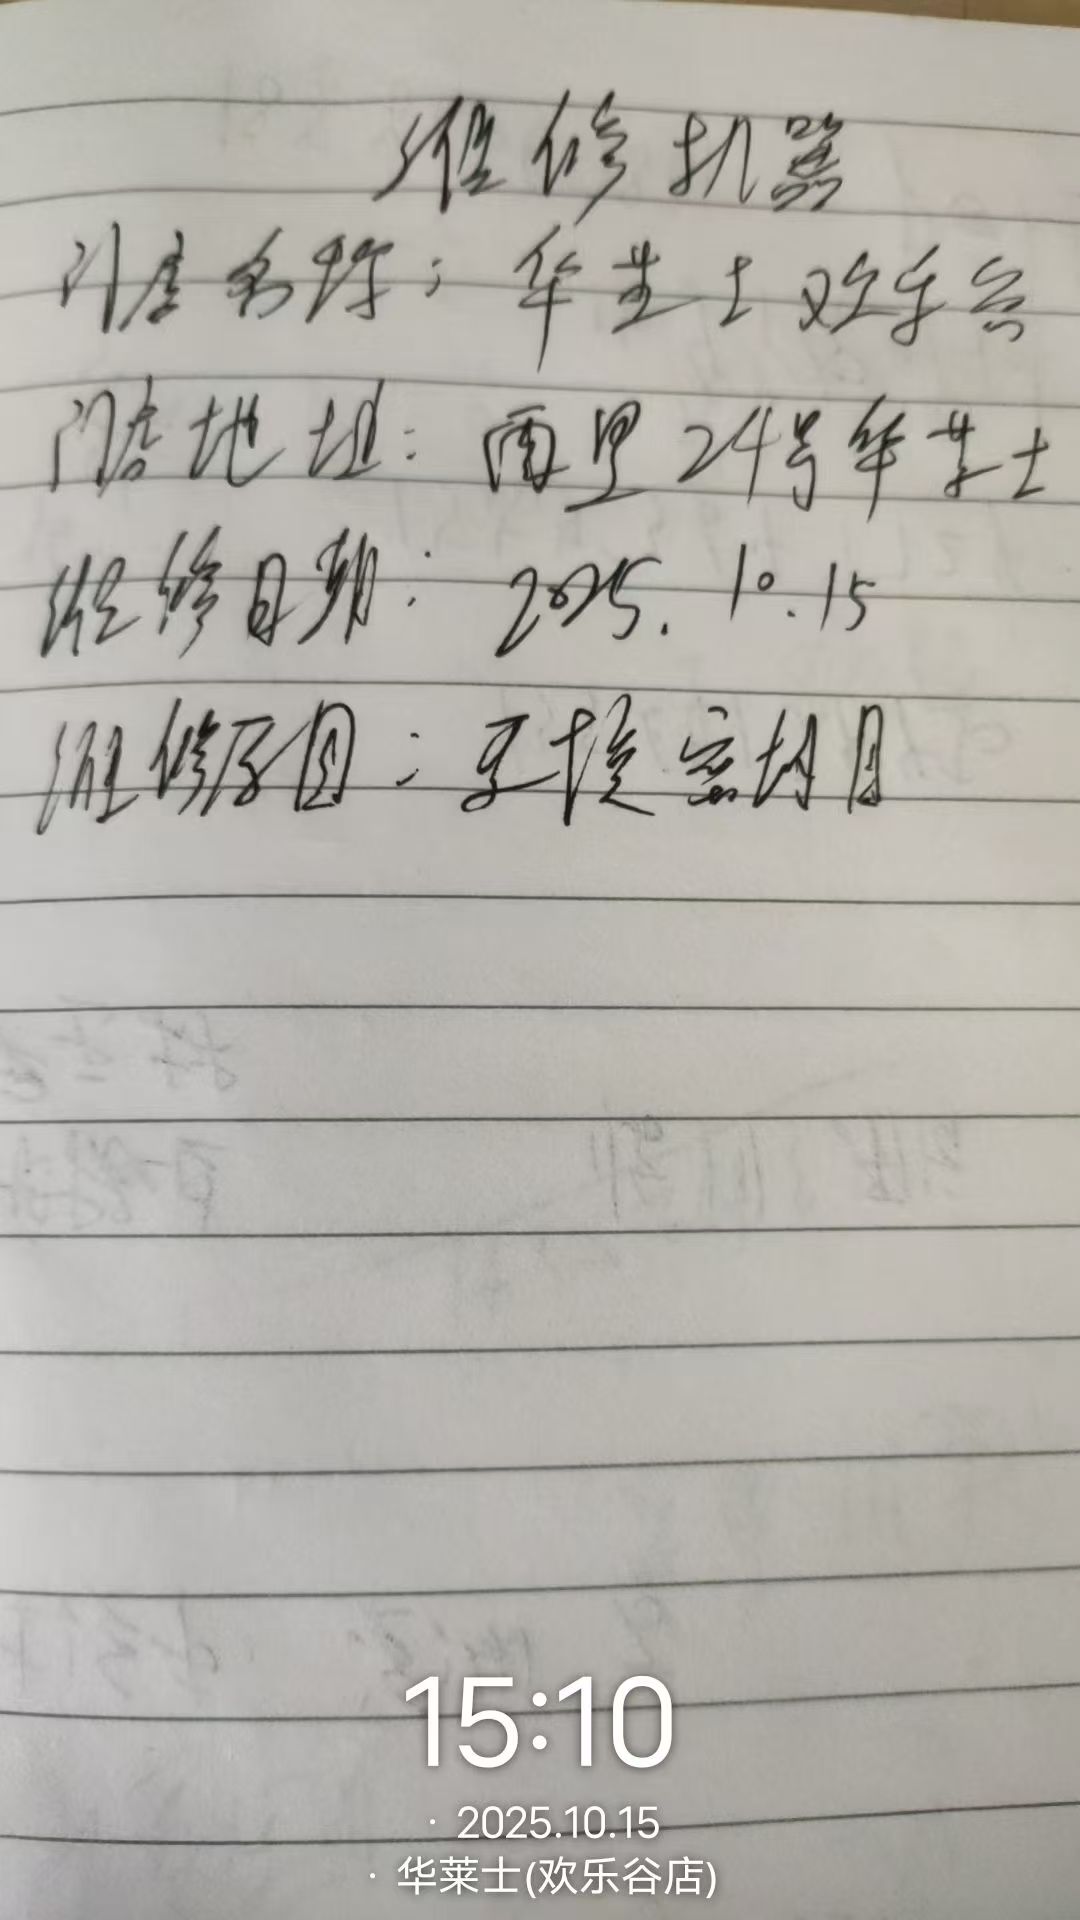 维修机器
门店名称：华莱士欢乐谷
门店地址：西里24号华莱士
维修日期：2025.10.15
维修原因：更换密封
15:10
· 2025.10.15
· 华莱士(欢乐谷店)